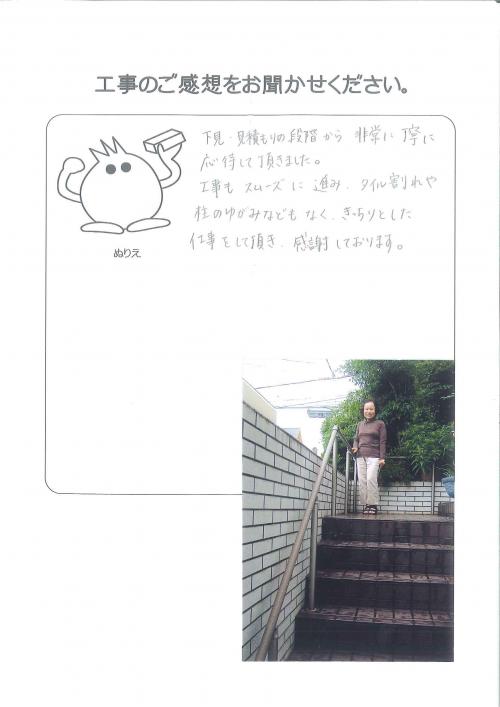 工事のご感想をお聞かせください。
下見・見積もりの段階から 非常に丁寧に
応待して頂きました。
工事も スムーズに 進み、タイル割れや
柱のゆがみなども なく、きっちりとした
仕事をして頂き、感謝しております。
ぬりえ